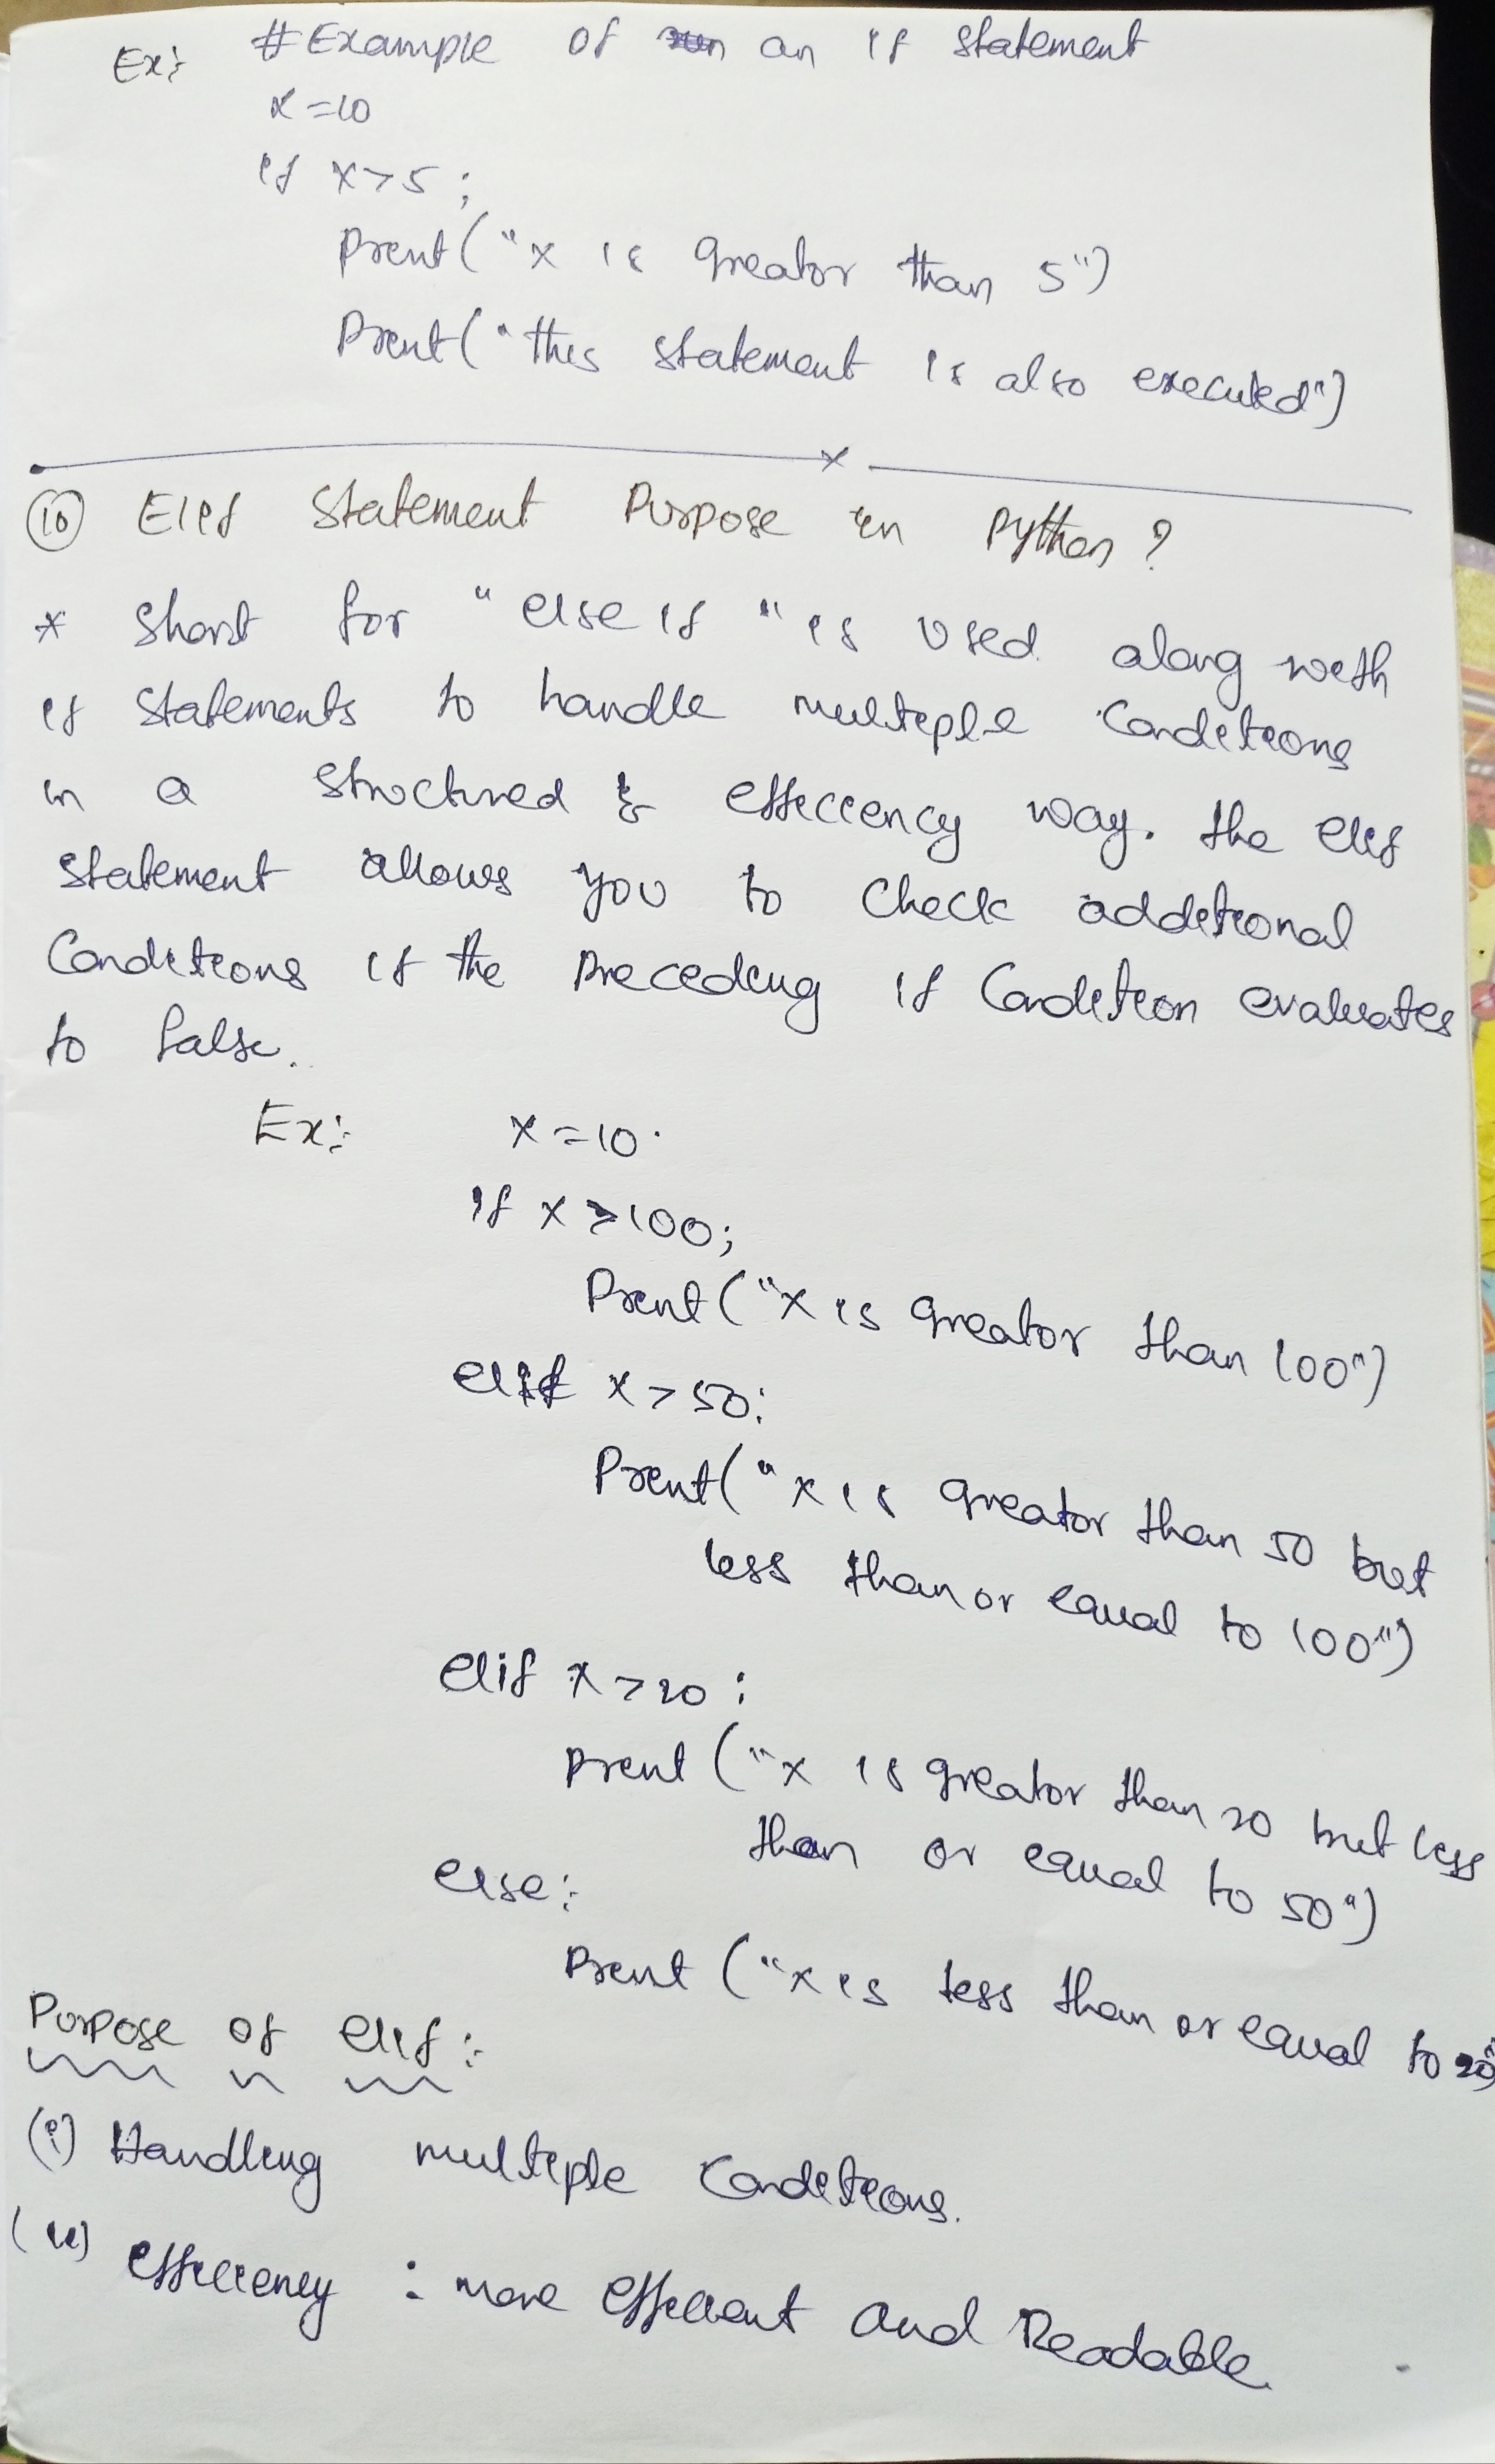 Ex:
#Example of an if statement
x=10
if x>5;
print("x is greator than 5")
print("this statement is also executed")
(10) Elif Statement Purpose in Python?
* Short for "else if" is used along with
if statements to handle multiple conditions
in a structured & efficiency way. the elif
statement allows you to check additional
conditions if the preceding if condition evaluates
to false.
Ex:- x=10.
if x>100;
Print("x is greator than 100")
elif x>50:
Print("x is greator than 50 but
less than or equal to 100")
elif x>20:
print("x is greator than 20 but less
than or equal to 50")
else:-
Print("x is less than or equal to 20")
Purpose of elif:-
(i) Handling multiple conditions.
(ii) efficiency : more efficient and Readable.